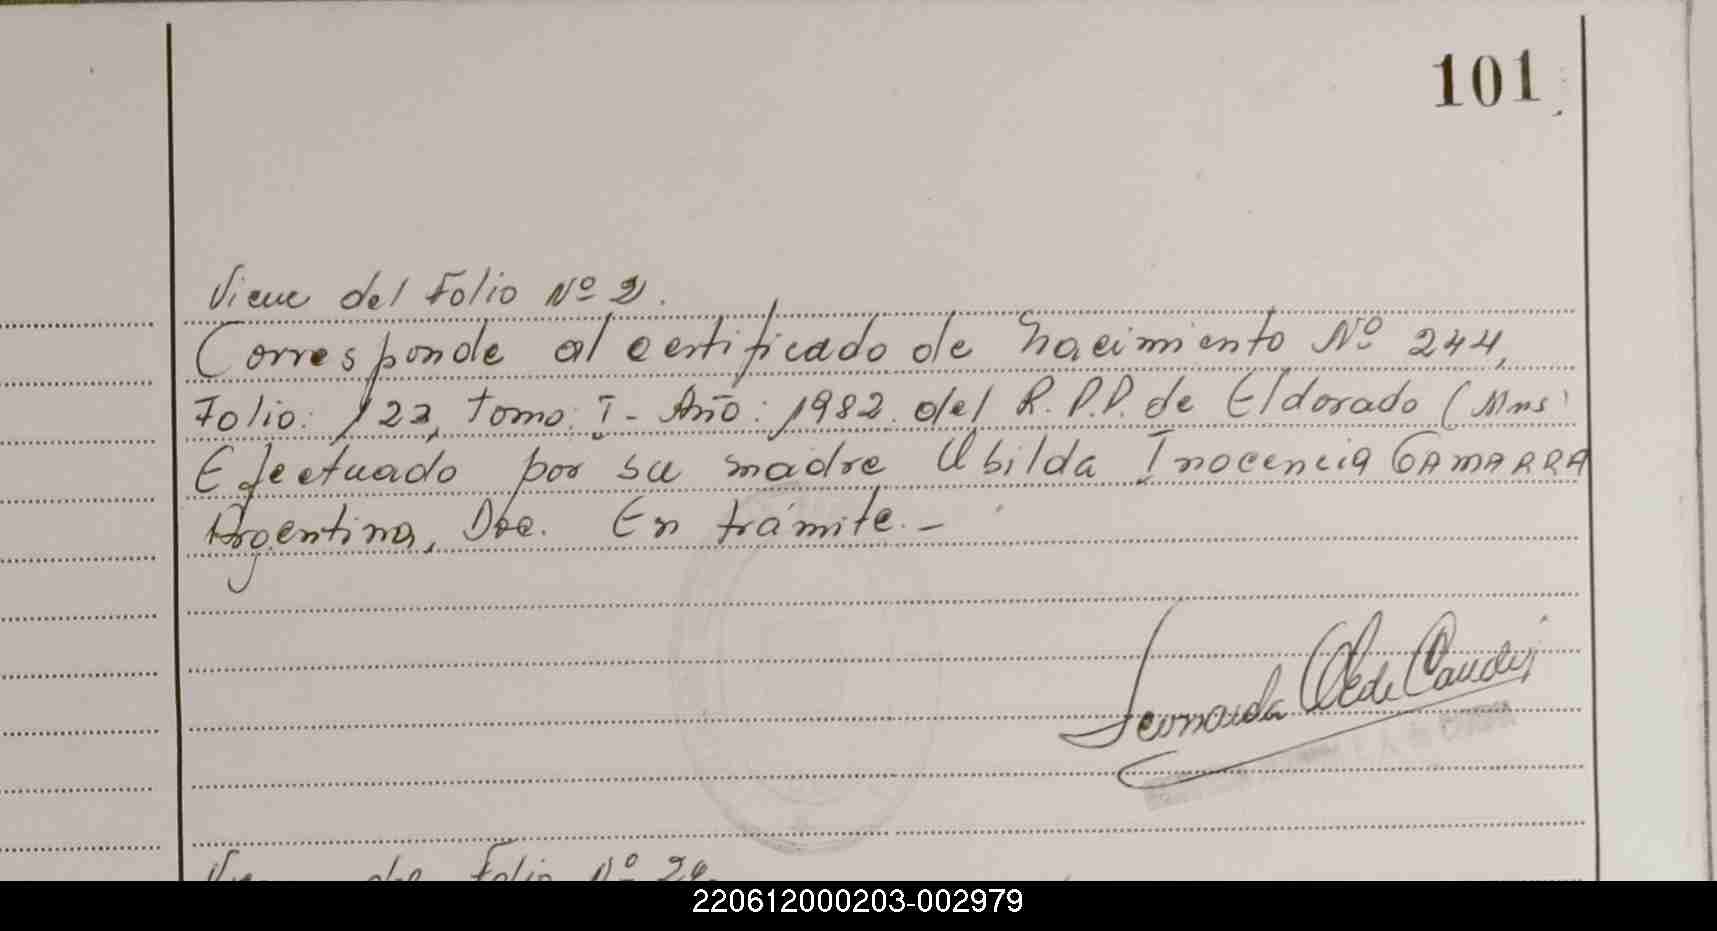 101
Viene del Folio Nº 2.
Corresponde al certificado de nacimiento Nº 244,
Folio: 122, tomo: I - Año: 1982. del R.P.P. de Eldorado (Mns)
Efectuado por su madre Ubilda Inocencia GAMARRA
Argentina, Doc. En trámite. -
del Folio Nº
220612000203-002979